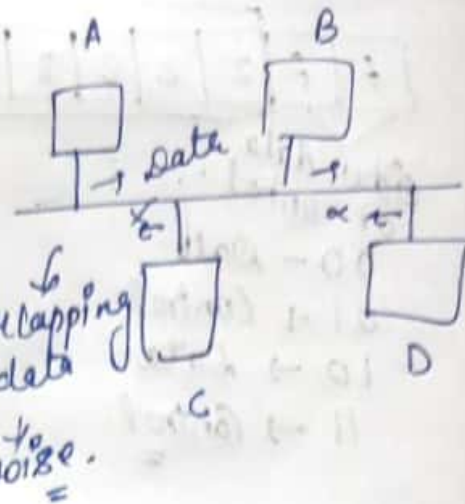 A
B
→ Data
→
←
←
lapping
data
C
D
to
noise.